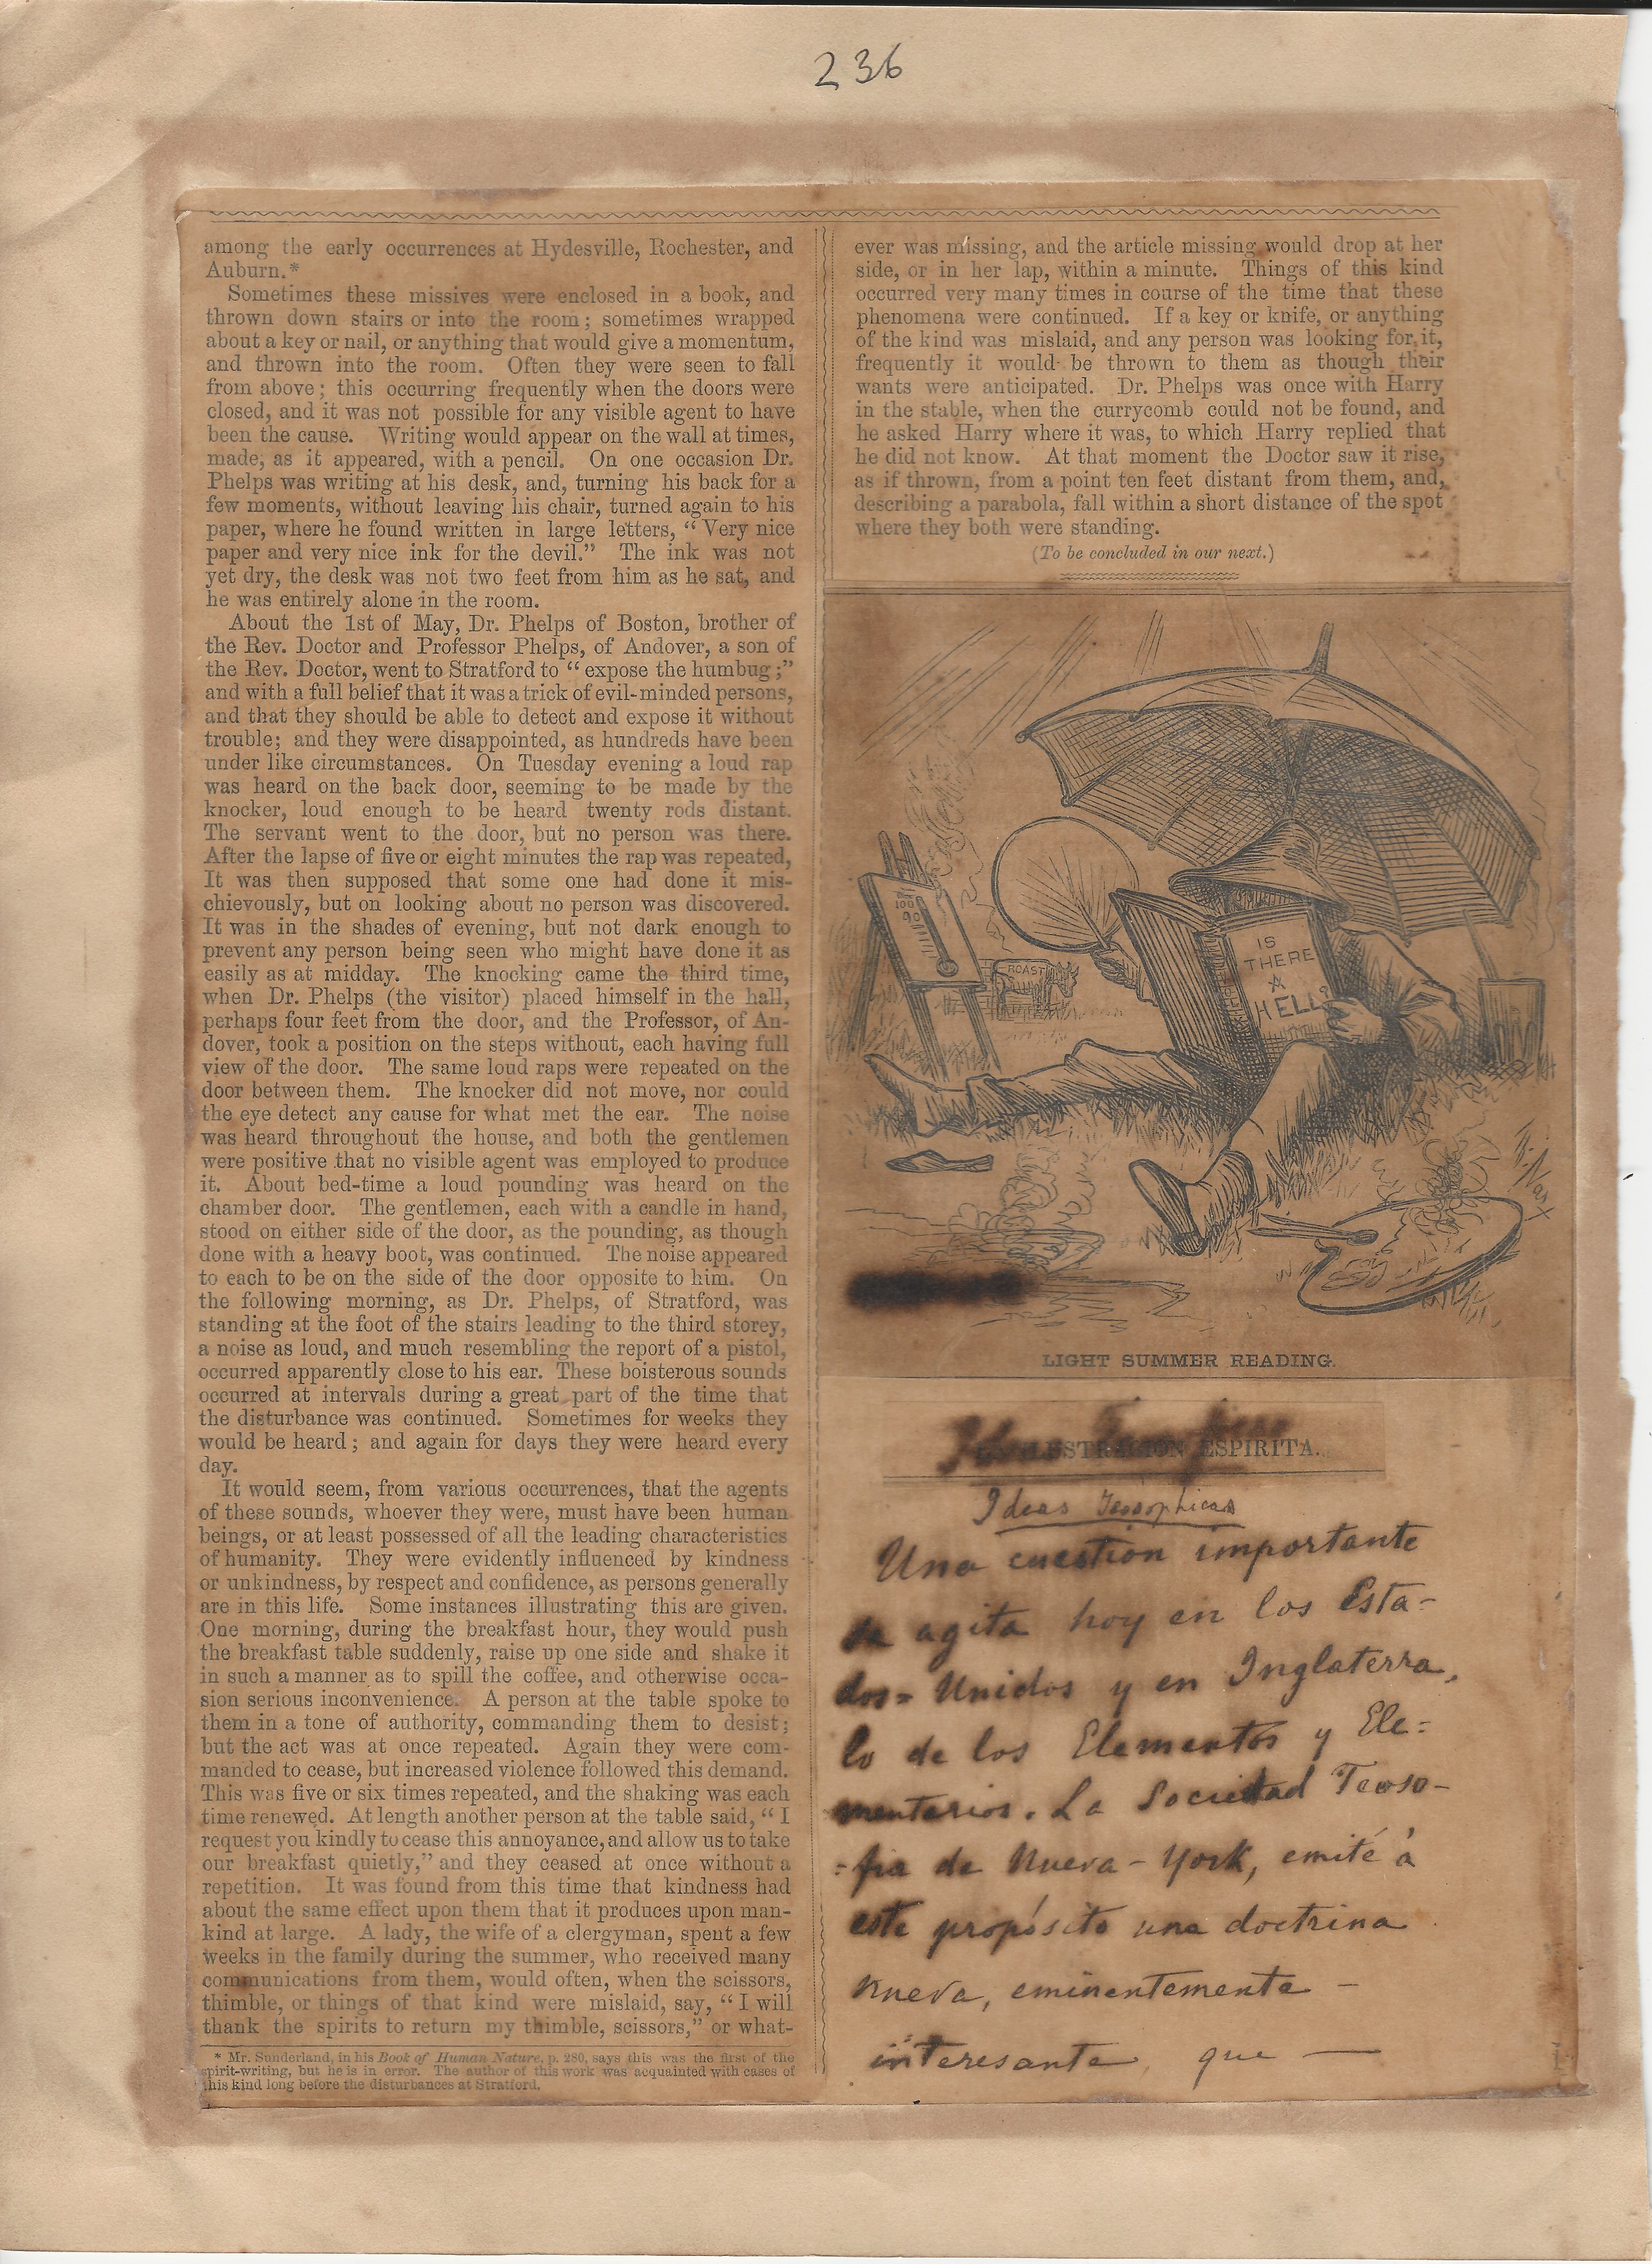 236
among the early occurrences at Hydesville, Rochester, and
Auburn.*
Sometimes these missives were enclosed in a book, and
thrown down stairs or into the room; sometimes wrapped
about a key or nail, or anything that would give a momentum,
and thrown into the room. Often they were seen to fall
from above; this occurring frequently when the doors were
closed, and it was not possible for any visible agent to have
been the cause. Writing would appear on the wall at times,
made, as it appeared, with a pencil. On one occasion Dr.
Phelps was writing at his desk, and, turning his back for a
few moments, without leaving his chair, turned again to his
paper, where he found written in large letters, “Very nice
paper and very nice ink for the devil.” The ink was not
yet dry, the desk was not two feet from him as he sat, and
he was entirely alone in the room.
About the 1st of May, Dr. Phelps of Boston, brother of
the Rev. Doctor and Professor Phelps, of Andover, a son of
the Rev. Doctor, went to Stratford to “expose the humbug;”
and with a full belief that it was a trick of evil-minded persons,
and that they should be able to detect and expose it without
trouble; and they were disappointed, as hundreds have been
under like circumstances. On Tuesday evening a loud rap
was heard on the back door, seeming to be made by the
knocker, loud enough to be heard twenty rods distant.
The servant went to the door, but no person was there.
After the lapse of five or eight minutes the rap was repeated,
It was then supposed that some one had done it mis-
chievously, but on looking about no person was discovered.
It was in the shades of evening, but not dark enough to
prevent any person being seen who might have done it as
easily as at midday. The knocking came the third time,
when Dr. Phelps (the visitor) placed himself in the hall,
perhaps four feet from the door, and the Professor, of An-
dover, took a position on the steps without, each having full
view of the door. The same loud raps were repeated on the
door between them. The knocker did not move, nor could
the eye detect any cause for what met the ear. The noise
was heard throughout the house, and both the gentlemen
were positive that no visible agent was employed to produce
it. About bed-time a loud pounding was heard on the
chamber door. The gentlemen, each with a candle in hand,
stood on either side of the door, as the pounding, as though
done with a heavy boot, was continued. The noise appeared
to each to be on the side of the door opposite to him. On
the following morning, as Dr. Phelps, of Stratford, was
standing at the foot of the stairs leading to the third storey,
a noise as loud, and much resembling the report of a pistol,
occurred apparently close to his ear. These boisterous sounds
occurred at intervals during a great part of the time that
the disturbance was continued. Sometimes for weeks they
would be heard; and again for days they were heard every
day.
It would seem, from various occurrences, that the agents
of these sounds, whoever they were, must have been human
beings, or at least possessed of all the leading characteristics
of humanity. They were evidently influenced by kindness
or unkindness, by respect and confidence, as persons generally
are in this life. Some instances illustrating this are given.
One morning, during the breakfast hour, they would push
the breakfast table suddenly, raise up one side and shake it
in such a manner as to spill the coffee, and otherwise occa-
sion serious inconvenience. A person at the table spoke to
them in a tone of authority, commanding them to desist;
but the act was at once repeated. Again they were com-
manded to cease, but increased violence followed this demand.
This was five or six times repeated, and the shaking was each
time renewed. At length another person at the table said, “I
request you kindly to cease this annoyance, and allow us to take
our breakfast quietly,” and they ceased at once without a
repetition. It was found from this time that kindness had
about the same effect upon them that it produces upon man-
kind at large. A lady, the wife of a clergyman, spent a few
weeks in the family during the summer, who received many
communications from them, would often, when the scissors,
thimble, or things of that kind were mislaid, say, “I will
thank the spirits to return my thimble, scissors,” or what-
* Mr. Sunderland, in his Book of Human Nature, p. 280, says this was the first of the
spirit-writing, but he is in error. The author of this work was acquainted with cases of
this kind long before the disturbances at Stratford.
ever was missing, and the article missing would drop at her
side, or in her lap, within a minute. Things of this kind
occurred very many times in course of the time that these
phenomena were continued. If a key or knife, or anything
of the kind was mislaid, and any person was looking for it,
frequently it would be thrown to them as though their
wants were anticipated. Dr. Phelps was once with Harry
in the stable, when the currycomb could not be found, and
he asked Harry where it was, to which Harry replied that
he did not know. At that moment the Doctor saw it rise,
as if thrown, from a point ten feet distant from them, and,
describing a parabola, fall within a short distance of the spot
where they both were standing.
(To be concluded in our next.)
100
90
ROAST
IS
THERE
A
HELL?
LIGHT SUMMER READING.
ESPIRITA.
Ideas Teosophicas
Una cuestion importante
se agita hoy en los Esta-
dos=Unidos y en Inglaterra,
lo de los Elementos y Ele=
mentarios. La Sociedad Teoso-
=fia de Nueva-York, emité á
este propósito una doctrina
nueva, eminentemente —
interesante, que —